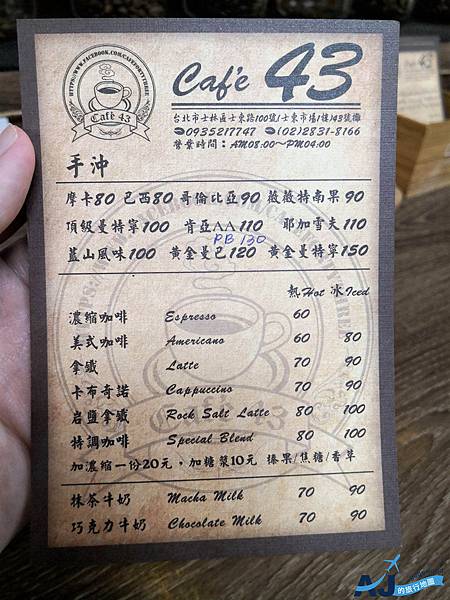 HTTPS://WWW.FACEBOOK.COM/CAFEFORTYTHREE
Café 43
Café 43
台北市士林區士東路100號(士東市場1樓)43號攤
0935217747 (02)2831-8166
營業時間：AM08:00~PM04:00
手沖
摩卡80 巴西80 哥倫比亞90 薇薇特南果 90
頂級曼特寧100 肯亞AA 110 耶加雪夫110
PB 130
藍山風味100 黃金曼巴120 黃金曼特寧150
熱Hot 冰Iced
濃縮咖啡 Espresso 60
美式咖啡 Americano 60 80
拿鐵 Latte 70 90
卡布奇諾 Cappuccino 70 90
岩鹽拿鐵 Rock Salt Latte 80 100
特調咖啡 Special Blend 80 100
加濃縮一份20元，加糖漿10元 榛果/焦糖/香草
抹茶牛奶 Macha Milk 70 90
巧克力牛奶 Chocolate Milk 70 90
AJ
的旅行地圖